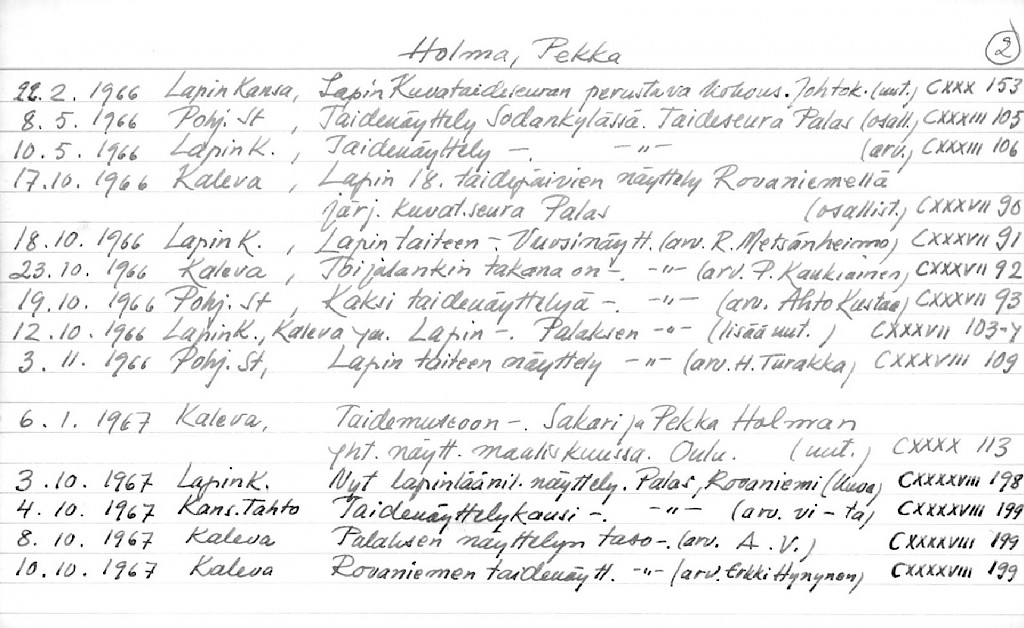 Holma, Pekka
2
22.2. 1966 Lapin Kansa, Lapin Kuvataideseuran perustava kokous. Johtok. (uut.) CXXX 153
8. 5. 1966 Pohj. St, Taidenäyttely Sodankylässä. Taideseura Palas (osall.) CXXXIII 105
10. 5. 1966 Lapin K., Taidenäyttely -. -"- (arv.) CXXXIII 106
17.10. 1966 Kaleva, Lapin 18. taidepäivien näyttely Rovaniemellä
järj. kuvat.seura Palas (osallist.) CXXXVII 90
18.10. 1966 Lapin K., Lapin taiteen -. Vuosinäytt. (arv. R. Metsänheimo) CXXXVII 91
23.10. 1966 Kaleva, takana on -. -"- (arv. P. Kaukiainen) CXXXVII 92
19.10. 1966 Pohj. St, Kaksi taidenäyttelyä -. -"- (arv. Ahto Kustaa) CXXXVII 93
12.10. 1966 Lapin K., Kaleva ym. Lapin -. Palaksen -"- (lisää uut. ) CXXXVII 103-4
3. 11. 1966 Pohj. St, Lapin taiteen näyttely -"- (arv. H. Turakka) CXXXVIII 109
6. 1. 1967 Kaleva, Taidemuseoon -. Sakari ja Pekka Holman
yht. näytt. maaliskuussa. Oulu. (uut.) CXXXX 113
3.10. 1967 Lapin K. Nyt lapinläänil. näyttely. Palas, Rovaniemi (kuva) CXXXXVIII 198
4.10. 1967 Kans. Tahto Taidenäyttelykausi -. -"- (arv. vi-ta) CXXXXVIII 199
8. 10. 1967 Kaleva Palaksen näyttelyn taso -. (arv. A.V.) CXXXXVIII 199
10.10. 1967 Kaleva Rovaniemen taidenäytt. -"- (arv. Erkki Hynynen) CXXXXVIII 199